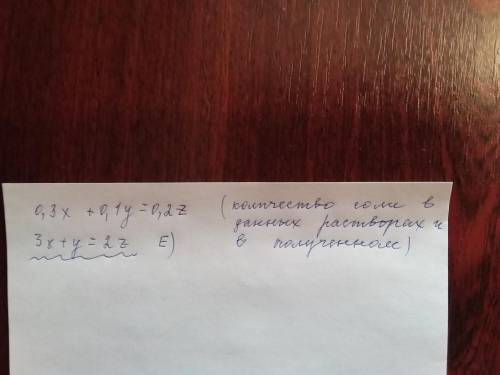 0,3x + 0,1y = 0,2z (количество соли в
данных растворах и
3x + y = 2z E) в полученном)